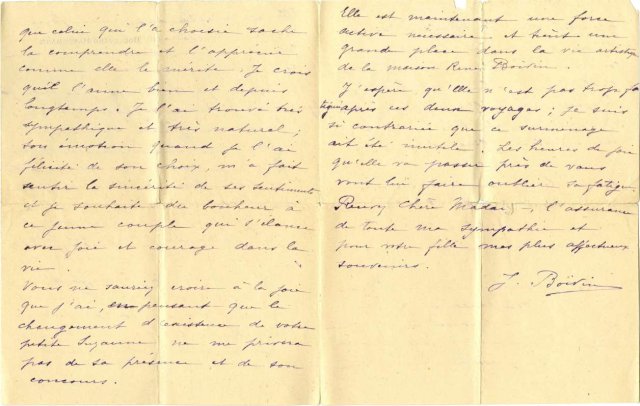 que celui qui l'a choisie sache
la comprendre et l'apprécier
comme elle le mérite. Je crois
qu'il l'aime bien et depuis
longtemps. Je l'ai trouvé très
sympathique et très naturel ;
son émotion quand je l'ai
félicité de son choix, m'a fait
sentir la sincérité de ses sentiments
et je souhaite du bonheur à
ce jeune couple qui s'élance
avec joie et courage dans la
vie.
Vous ne sauriez croire à la joie
que j'ai, en pensant que le
changement d'existence de votre
petite Suzanne ne me privera
pas de sa présence et de son
concours.
Elle est maintenant une force
active nécessaire et tient une
grande place dans la vie artistique
de la maison René Boivin.
J'espère qu'Elle n'est pas trop fa
tiguée après ces deux voyages ; je suis
si contrariée que ce surmenage
ait été inutile. Les heures de joie
qu'elle va passer près de vous
vont lui faire oublier sa fatigue.
Recevez Chère Madame, l'assurance
de toute ma sympathie et
pour votre fille mes plus affectueux
souvenirs.
J. Boivin